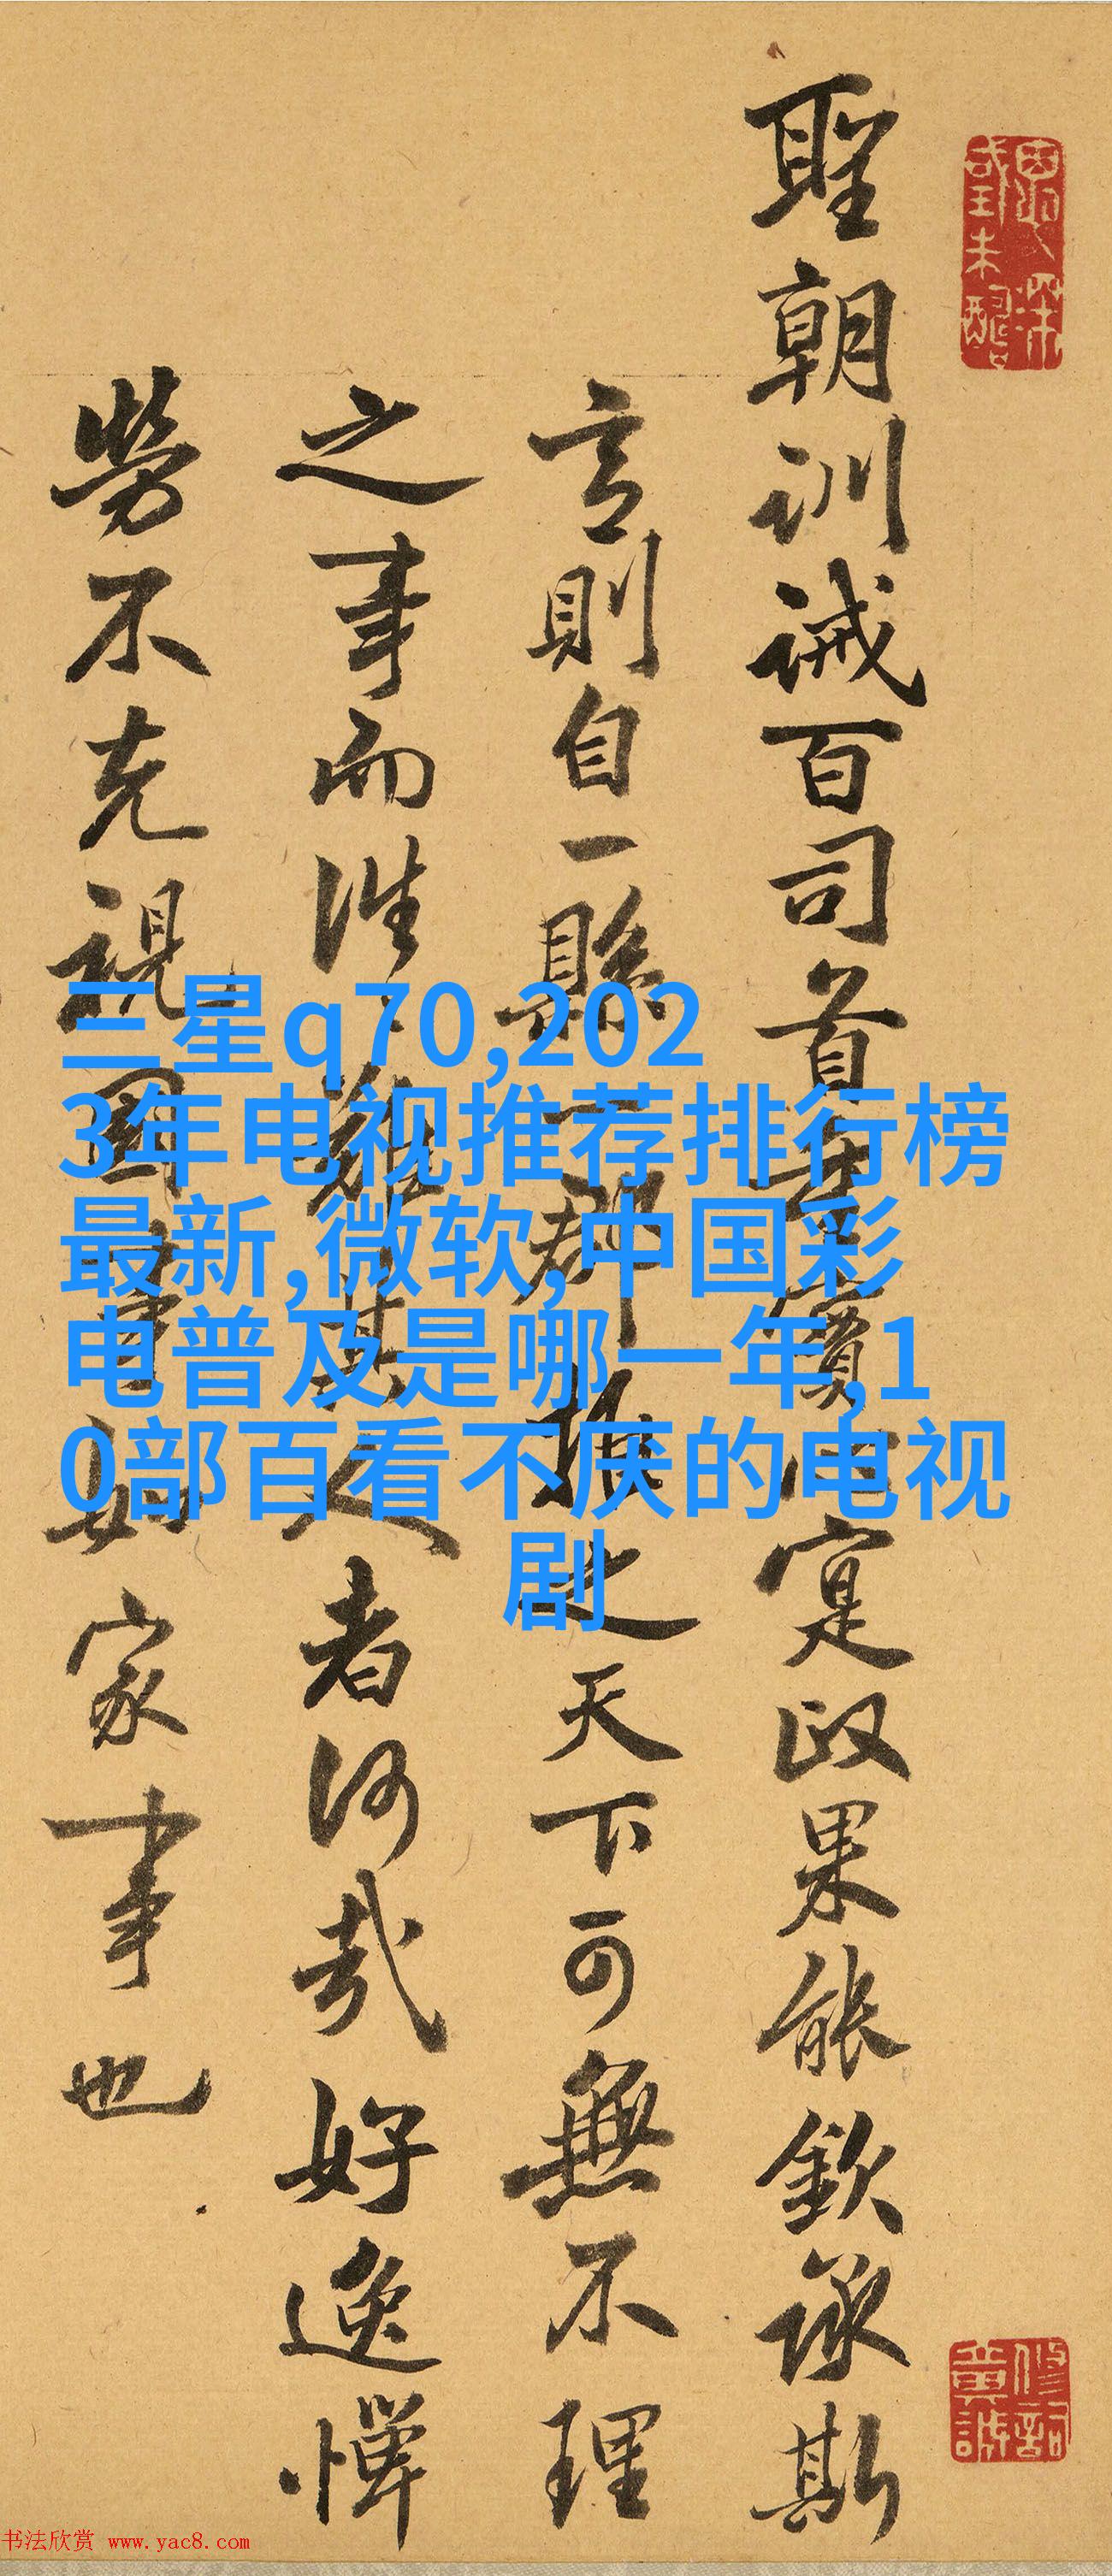 聖朝訓誡百司首實心寔政果能欽承斯
言則自一縣一郡推之天下可無不理
之事而往往難其人者何哉好逸憚
勞不克視國事如家事也
三星q70,202
3年电视推荐排行榜
最新,微软,中国彩
电普及是哪一年,1
0部百看不厌的电视
剧
书法欣赏 www.yac8.com